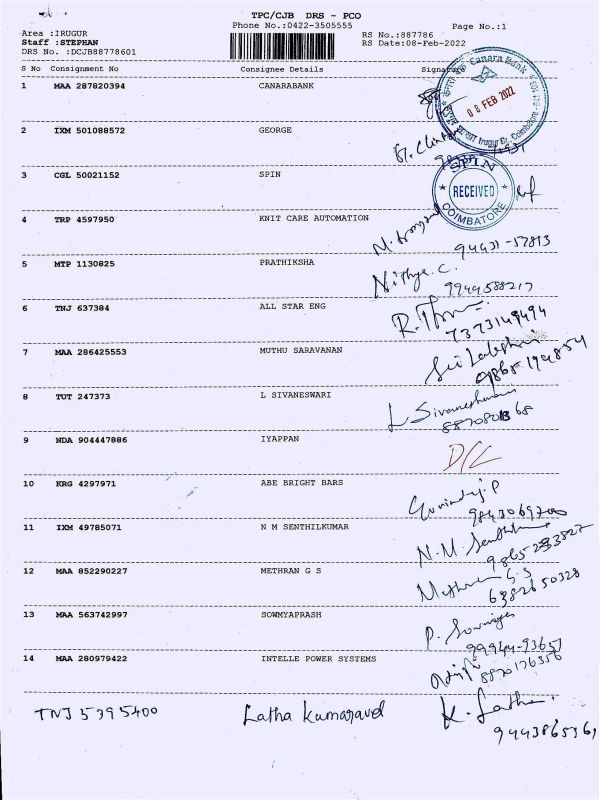 TPC/CJB DRS - PCO
Phone No.:0422-3505555 Page No.:1
Area :IRUGUR RS No.:887786
Staff :STEPHAN RS Date:08-Feb-2022
DRS No. :DCJB88778601
S No Consignment No Consignee Details Signature
1 MAA 287820394 CANARABANK
Canara Bank
08 FEB 2022
2 IXM 501088572 GEORGE
3 CGL 50021152 SPIN
SPIN
RECEIVED
COIMBATORE
4 TRP 4597950 KNIT CARE AUTOMATION
94431-57813
5 MTP 1130825 PRATHIKSHA
Nithya. C.
9944588217
6 TNJ 637384 ALL STAR ENG
7373149494
7 MAA 286425553 MUTHU SARAVANAN
9865194854
8 TUT 247373 L SIVANESWARI
L Sivaneshwari
9 NDA 904447886 IYAPPAN
D/L
10 KRG 4297971 ABE BRIGHT BARS
Govindaraj. P
9843069700
11 IXM 49785071 N M SENTHILKUMAR
N.M. Senthil
12 MAA 852290227 METHRAN G S
Methran G.S
6382650328
13 MAA 563742997 SOWMYAPRASH
P. Sowmya
99944-93657
14 MAA 280979422 INTELLE POWER SYSTEMS
8870176356
TNJ 5395400 Latha Kumaravel K. Latha
9443865361